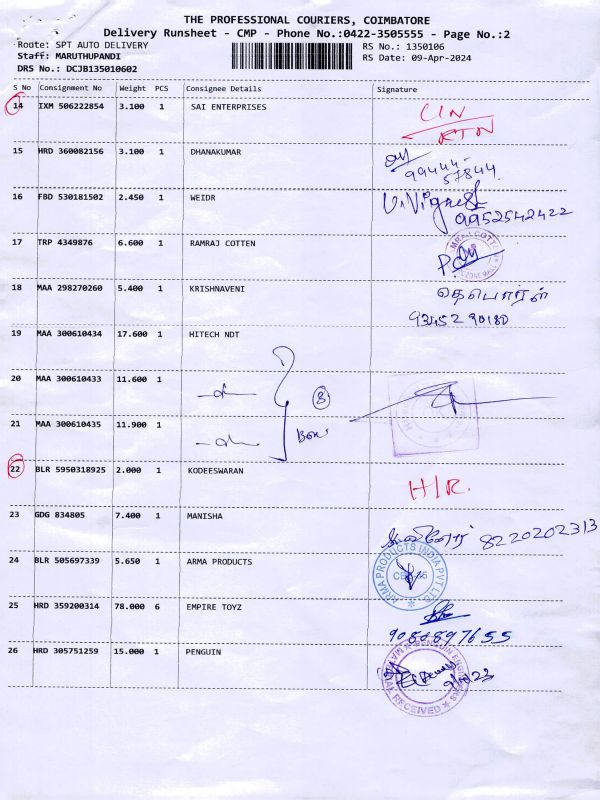 THE PROFESSIONAL COURIERS, COIMBATORE
Delivery Runsheet - CMP - Phone No.:0422-3505555 - Page No.:2
Route: SPT AUTO DELIVERY
RS No.: 1350106
Staff: MARUTHUPANDI
RS Date: 09-Apr-2024
DRS No.: DCJB135010602
S No Consignment No Weight PCS Consignee Details Signature
14 IXM 506222854 3.100 1 SAI ENTERPRISES
15 HRD 360082156 3.100 1 DHANAKUMAR
99444-
57844
16 FBD 530181502 2.450 1 WEIDR
V.Vignesh
9952542422
17 TRP 4349876 6.600 1 RAMRAJ COTTEN
18 MAA 298270260 5.400 1 KRISHNAVENI
19 MAA 300610434 17.600 1 HITECH NDT
20 MAA 300610433 11.600 1
21 MAA 300610435 11.900 1
3
Box
22 BLR 5950318925 2.000 1 KODEESWARAN
H/R.
23 GDG 834805 7.400 1 MANISHA
8220202313
24 BLR 505697339 5.650 1 ARMA PRODUCTS
ARMA PRODUCTS INDIA PVT LTD
25 HRD 359200314 78.000 6 EMPIRE TOYZ
9080897655
26 HRD 305751259 15.000 1 PENGUIN
RECEIVED